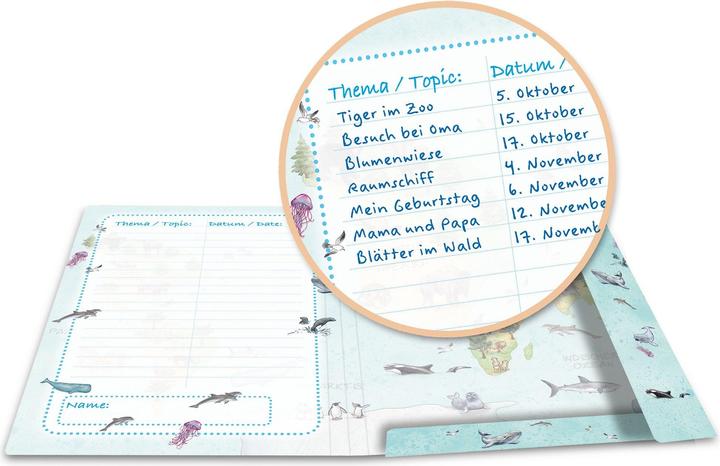 Thema / Topic: Datum /
Tiger im Zoo 5. Oktober
Besuch bei Oma 15. Oktober
Blumenwiese 17. Oktober
Raumschiff 4. November
Mein Geburtstag 6. November
Mama und Papa 12. Novembe
Blätter im Wald 17. Novemb
Thema / Topic: Datum / Date:
Name:
INDISCHER
OZEAN